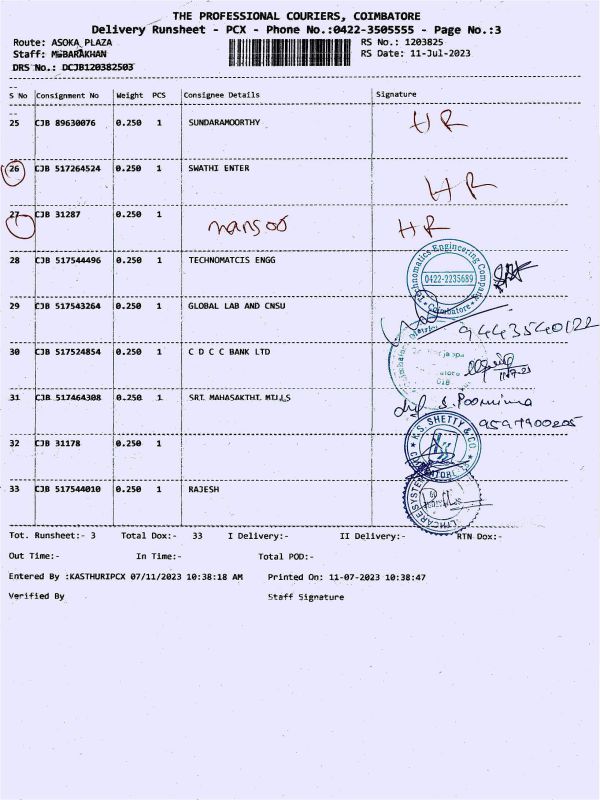 THE PROFESSIONAL COURIERS, COIMBATORE
Delivery Runsheet - PCX - Phone No.:0422-3505555 - Page No.:3
Route: ASOKA PLAZA RS No.: 1203825
Staff: MUBARAKHAN RS Date: 11-Jul-2023
DRS No.: DCJB120382503
S No Consignment No Weight PCS Consignee Details Signature
25 CJB 89630076 0.250 1 SUNDARAMOORTHY HR
26 CJB 517264524 0.250 1 SWATHI ENTER HR
27 CJB 31287 0.250 1 mansoo HR
28 CJB 517544496 0.250 1 TECHNOMATCIS ENGG
Technomatics Engineering Company
0422-2235689
* Coimbatore *
29 CJB 517543264 0.250 1 GLOBAL LAB AND CNSU 9443540122
30 CJB 517524854 0.250 1 C D C C BANK LTD
31 CJB 517464308 0.250 1 SRI MAHASAKTHI MILLS S. Poornima
K.S. SHETTY & CO
32 CJB 31178 0.250 1
33 CJB 517544010 0.250 1 RAJESH
Tot. Runsheet:- 3 Total Dox:- 33 I Delivery:- II Delivery:- RTN Dox:-
Out Time:- In Time:- Total POD:-
Entered By :KASTHURIPCX 07/11/2023 10:38:18 AM Printed On: 11-07-2023 10:38:47
Verified By Staff Signature